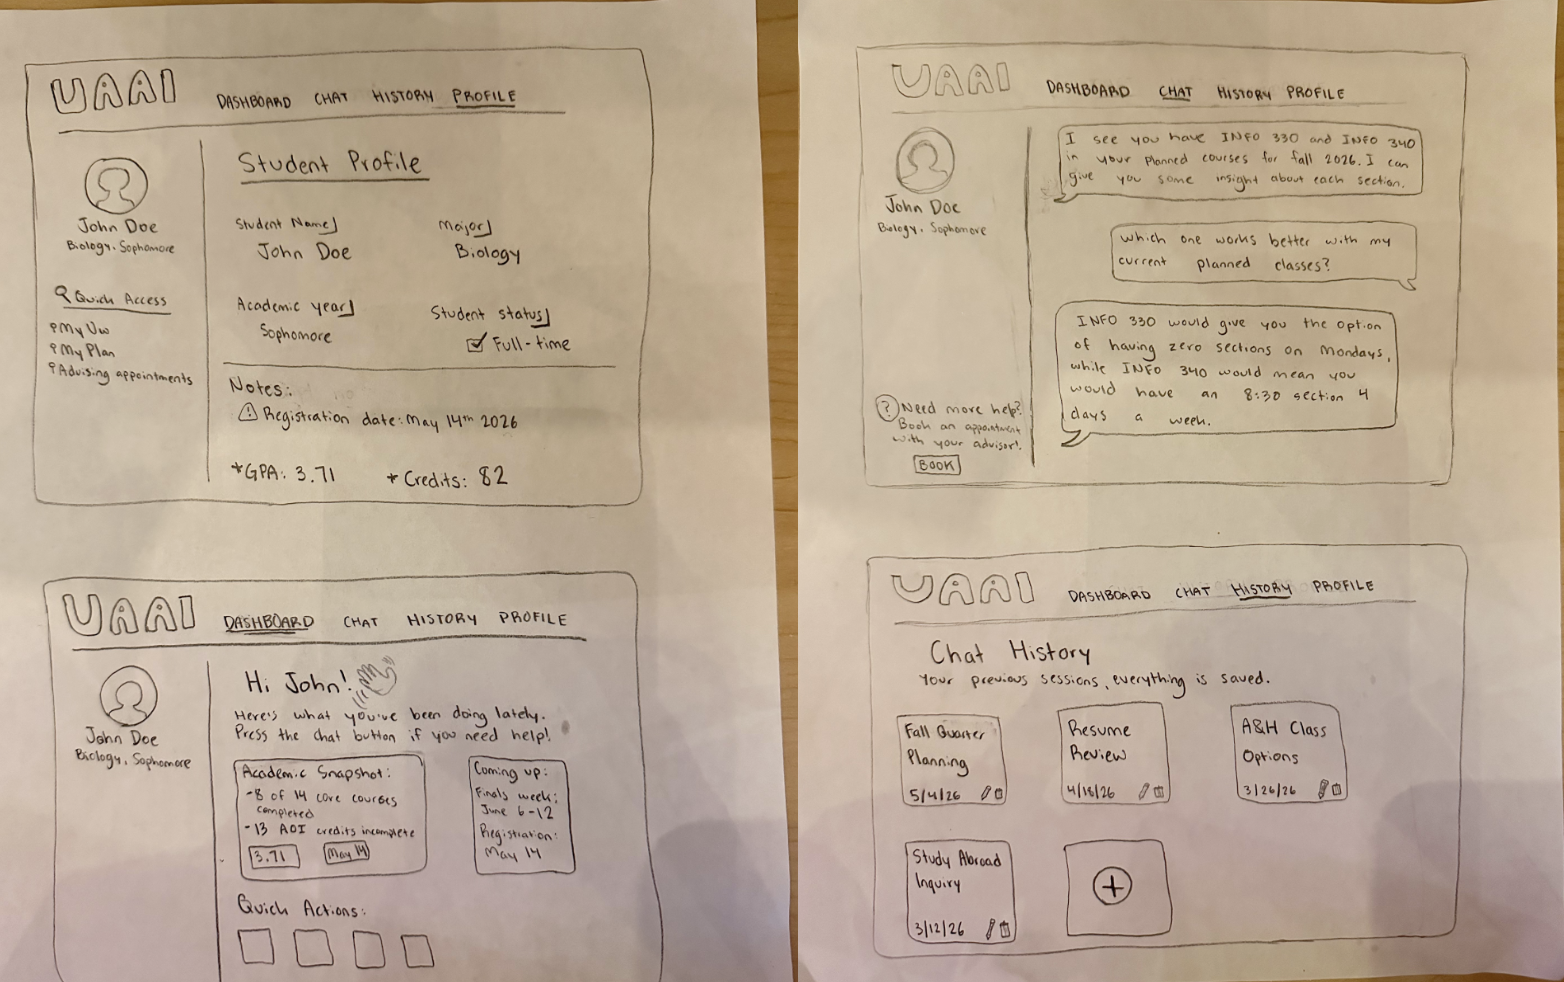 UAAI
DASHBOARD CHAT HISTORY PROFILE
John Doe
Biology, Sophomore
Quick Access
My Uw
My Plan
Advising appointments
Student Profile
Student Name
John Doe
Major
Biology
Academic year
Sophomore
Student status
Full-time
Notes:
Registration date: May 14th 2026
*GPA: 3.71
* Credits: 82
UAAI
DASHBOARD CHAT HISTORY PROFILE
John Doe
Biology, Sophomore
Hi John!
Here's what you've been doing lately.
Press the chat button if you need help!
Academic Snapshot:
-8 of 14 core courses
completed
-13 AOI credits incomplete
3.71
May 14
Coming up:
Finals week:
June 6-12
Registration:
May 14
Quick Actions:
UAAI
DASHBOARD CHAT HISTORY PROFILE
John Doe
Biology, Sophomore
? Need more help?
Book an appointment
with your advisor!
BOOK
I see you have INFO 330 and INFO 340
in your planned courses for fall 2026. I can
give you some insight about each section.
which one works better with my
current planned classes?
INFO 330 would give you the option
of having zero sections on Mondays,
while INFO 340 would mean you
would have an 8:30 section 4
days a week.
UAAI
DASHBOARD CHAT HISTORY PROFILE
Chat History
Your previous sessions, everything is saved.
Fall Quarter
Planning
5/4/26
Resume
Review
4/18/26
A&H Class
Options
3/26/26
Study Abroad
Inquiry
3/12/26
+